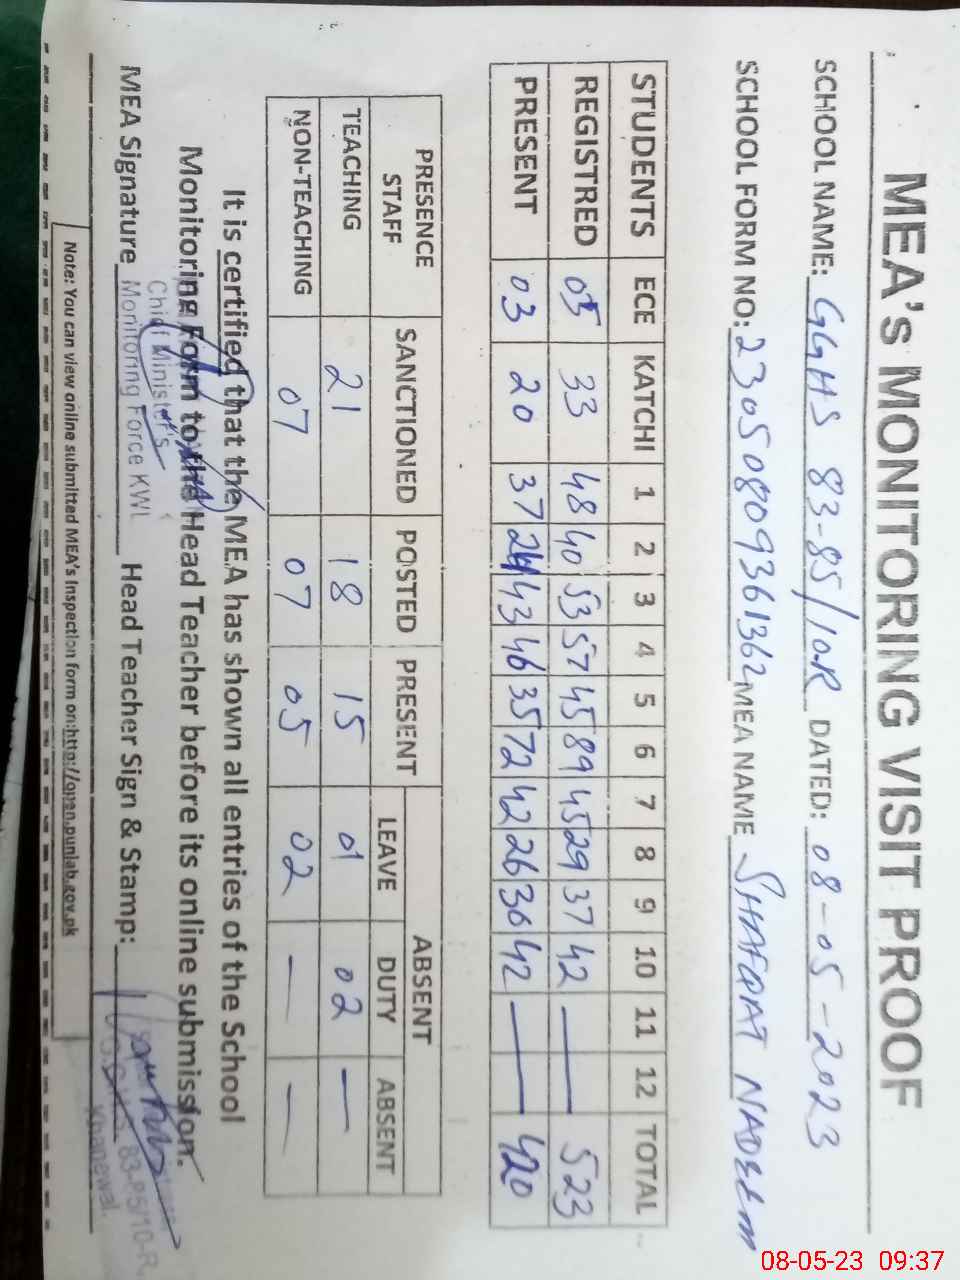 MEA's MONITORING VISIT PROOF
SCHOOL NAME: GGHS 83-85/10R DATED: 08-05-2023
SCHOOL FORM NO: 23050809361362 MEA NAME SHAFQAT NADEEM
STUDENTS ECE KATCHI 1 2 3 4 5 6 7 8 9 10 11 12 TOTAL
REGISTRED 05 33 48 40 53 57 45 89 45 29 37 42 — 523
PRESENT 03 20 37 24 43 46 35 72 42 26 30 42 — 420
PRESENCE STAFF SANCTIONED POSTED PRESENT ABSENT
LEAVE DUTY ABSENT
TEACHING 21 18 15 01 02 —
NON-TEACHING 07 07 05 02 — —
It is certified that the MEA has shown all entries of the School
Monitoring Form to the Head Teacher before its online submission.
Chief Minister's
MEA Signature Monitoring Force KWL Head Teacher Sign & Stamp:
83-85/10-R,
Khanewal.
Note: You can view online submitted MEA's Inspection form on:http://open.punlab.gov.pk
08-05-23 09:37